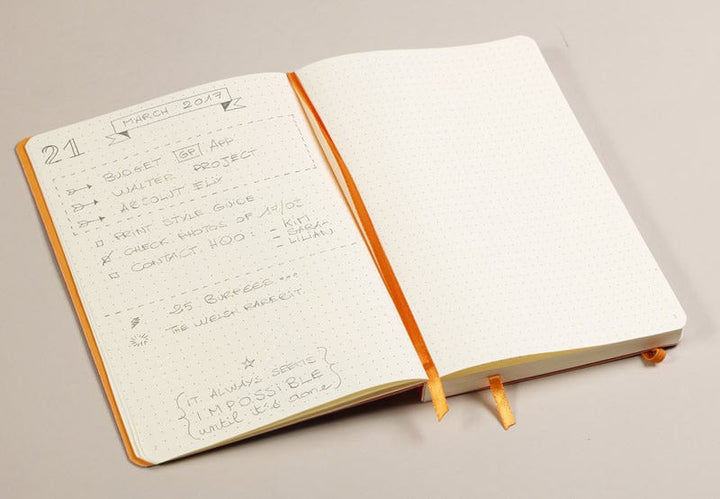 MARCH 2017
21
BUDGET GP APP
WALTER PROJECT
ABSOLUT ELYX
PRINT STYLE GUIDE
CHECK PHOTOS OF
CONTACT HDO: - KIM
- SARAH
- LILIAN
25 BURPEES
THE WELSH RAREBIT.
{IT ALWAYS SEEMS
IMPOSSIBLE
until it's done}